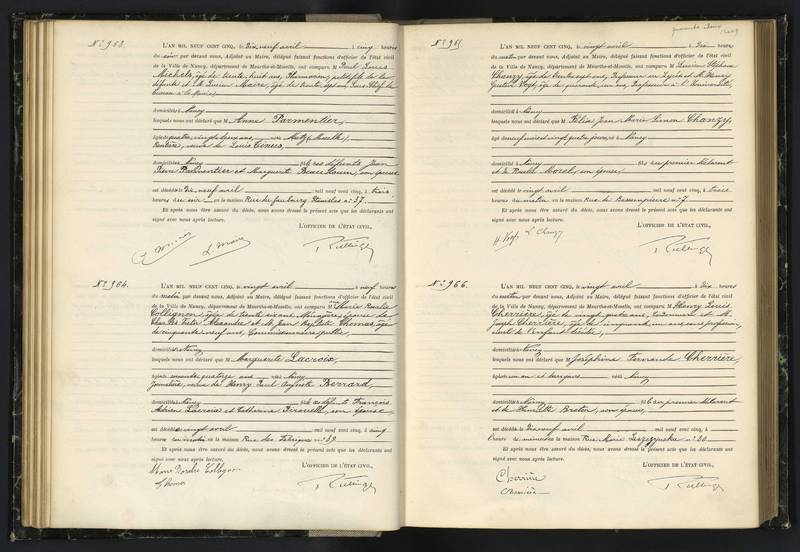 N° 963.
L'AN MIL NEUF CENT CINQ, le dix neuf avril à cinq heures
du soir par devant nous, Adjoint au Maire, délégué faisant fonctions d'officier de l'état civil
de la Ville de Nancy, département de Meurthe-et-Moselle, ont comparu M Paul Louis
Michels, âgé de trente huit ans, Pharmacien,
défunte et Lucien Maire, âgé de trente sept ans, Sous Chef de
bureau à la Mairie,
domiciliés à Nancy
lesquels nous ont déclaré que M Anne Parmentier,
âgée quatre vingt deux ans, née Metz (Moselle),
Rentière, veuve de Louis
domiciliée à Nancy fille des défunts Jean
Pierre Parmentier et Marguerite son épouse
est décédée le dix neuf avril mil neuf cent cinq, à trois
heures du soir en la maison Rue du faubourg Stanislas n° 37.
Et après nous être assuré du décès, nous avons dressé le présent acte que les déclarants ont
signé avec nous après lecture.
L'OFFICIER DE L'ÉTAT CIVIL,
L. Maire
N° 964.
L'AN MIL NEUF CENT CINQ, le vingt avril à neuf heures
du matin par devant nous, Adjoint au Maire, délégué faisant fonctions d'officier de l'état civil
de la Ville de Nancy, département de Meurthe-et-Moselle, ont comparu M Marie Rosalie
Collignon, âgée de trente six ans, Ménagère, épouse de
Charles Victor Alexandre et M. Jean Baptiste Thomas, âgé
de cinquante neuf ans, Commissionnaire public,
domiciliés à Nancy
lesquels nous ont déclaré que M Marguerite Lacroix,
âgée de soixante quatorze ans née à Nancy
Journalière, veuve de Henry Paul Auguste Berrard,
domiciliée à Nancy fille des défunts François
Adrien Lacroix et Catherine son épouse
est décédée le vingt avril mil neuf cent cinq, à cinq
heures du matin en la maison Rue des Fabriques n° 39
Et après nous être assuré du décès, nous avons dressé le présent acte que les déclarants ont
signé avec nous après lecture.
L'OFFICIER DE L'ÉTAT CIVIL,
Marie Rosalie Collignon
Thomas
N° 965.
L'AN MIL NEUF CENT CINQ, le vingt avril à dix heures
du matin par devant nous, Adjoint au Maire, délégué faisant fonctions d'officier de l'état civil
de la Ville de Nancy, département de Meurthe-et-Moselle, ont comparu M Lucien Stéphane
Chanzy, âgé de trente sept ans, Professeur au Lycée et M. Henri
Gustave Vogt, âgé de quarante un ans, Professeur à l'Université,
domiciliés à Nancy
lesquels nous ont déclaré que M Félix Jean Marie Simon Chanzy,
âgé de neuf mois et vingt quatre jours, né à Nancy
domicilié à Nancy fils du premier déclarant
et de Morel, son épouse,
est décédé le vingt avril mil neuf cent cinq, à trois
heures du matin en la maison Rue de Bassompierre n° 7.
Et après nous être assuré du décès, nous avons dressé le présent acte que les déclarants ont
signé avec nous après lecture.
L'OFFICIER DE L'ÉTAT CIVIL,
H Vogt L Chanzy
N° 966.
L'AN MIL NEUF CENT CINQ, le vingt avril à dix heures
du matin par devant nous, Adjoint au Maire, délégué faisant fonctions d'officier de l'état civil
de la Ville de Nancy, département de Meurthe-et-Moselle, ont comparu M Henry Louis
Cherrière, âgé de vingt quatre ans, Cordonnier et M.
Joseph Cherrière, âgé de cinquante un ans sans profession,
oncle de l'enfant décédée,
domiciliés à Nancy
lesquels nous ont déclaré que M Joséphine Fernande Cherrière,
âgée de un an et demi née à Nancy
domiciliée à Nancy fille du premier déclarant
et de Henriette Breton, son épouse,
est décédée le dix neuf avril mil neuf cent cinq, à
heure du en la maison Rue Marie Leszczynska n° 30
Et après nous être assuré du décès, nous avons dressé le présent acte que les déclarants ont
signé avec nous après lecture.
L'OFFICIER DE L'ÉTAT CIVIL,
Cherrière
Cherrière